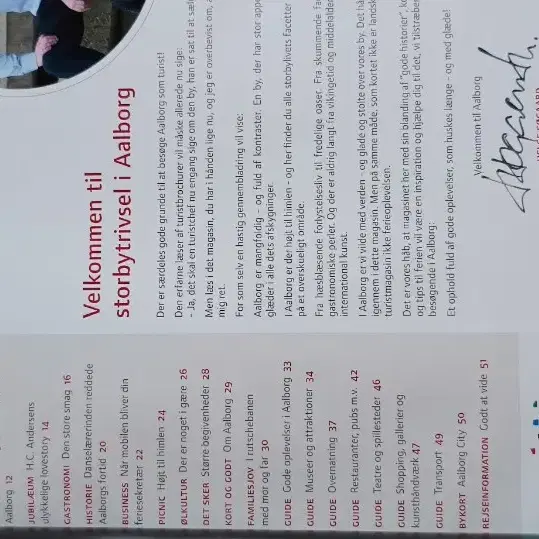 Aalborg 12
JUBILÆUM H.C. Andersens
ulykkelige lovestory 14
GASTRONOMI Den store smag 16
HISTORIE Danselærerinden reddede
Aalborgs fortid 20
BUSINESS Når mobilen bliver din
feriesekretær 22
PICNIC Højt til himlen 24
ØLKULTUR Der er noget i gære 26
DET SKER Større begivenheder 28
KORT OG GODT Om Aalborg 29
FAMILIESJOV I rutschebanen
med mor og far 30
GUIDE Gode oplevelser i Aalborg 33
GUIDE Museer og attraktioner 34
GUIDE Overnatning 37
GUIDE Restauranter, pubs m.v. 42
GUIDE Teatre og spillesteder 46
GUIDE Shopping, gallerier og
kunsthåndværk 47
GUIDE Transport 49
BYKORT Aalborg City 50
REJSEINFORMATION Godt at vide 51
Velkommen til
storbytrivsel i Aalborg
Der er særdeles gode grunde til at besøge Aalborg som turist!
Den erfarne læser af turistbrochurer vil måske allerede nu sige:
- Ja, det skal en turistchef nu engang sige om den by, han er sat til at
Men læs i det magasin, du har i hånden lige nu, og jeg er overbevist om,
mig ret.
For som selv en hastig gennembladring vil vise:
Aalborg er mangfoldig – og fuld af kontraster. En by, der har stor
glæder i alle dets afskygninger.
I Aalborg er der højt til himlen – og her finder du alle storbylivets facetter
på et overskueligt område.
Fra hæsblæsende forlystelsesliv til fredelige oaser. Fra skummende
gastronomiske perler. Og der er aldrig langt fra vikingetid og middelalder
international kunst.
I Aalborg er vi vilde med verden - og glade og stolte over vores by. Det
igennem i dette magasin. Men på samme måde, som kortet ikke er
turistmagasin ikke ferieoplevelsen.
Det er vores håb, at magasinet her med sin blanding af "gode historier",
og tips til ferien vil være en inspiration og hjælpe dig til det, vi tilstræber
besøgende i Aalborg:
Et ophold fuld af gode oplevelser, som huskes længe – og med glæde!
Velkommen til Aalborg